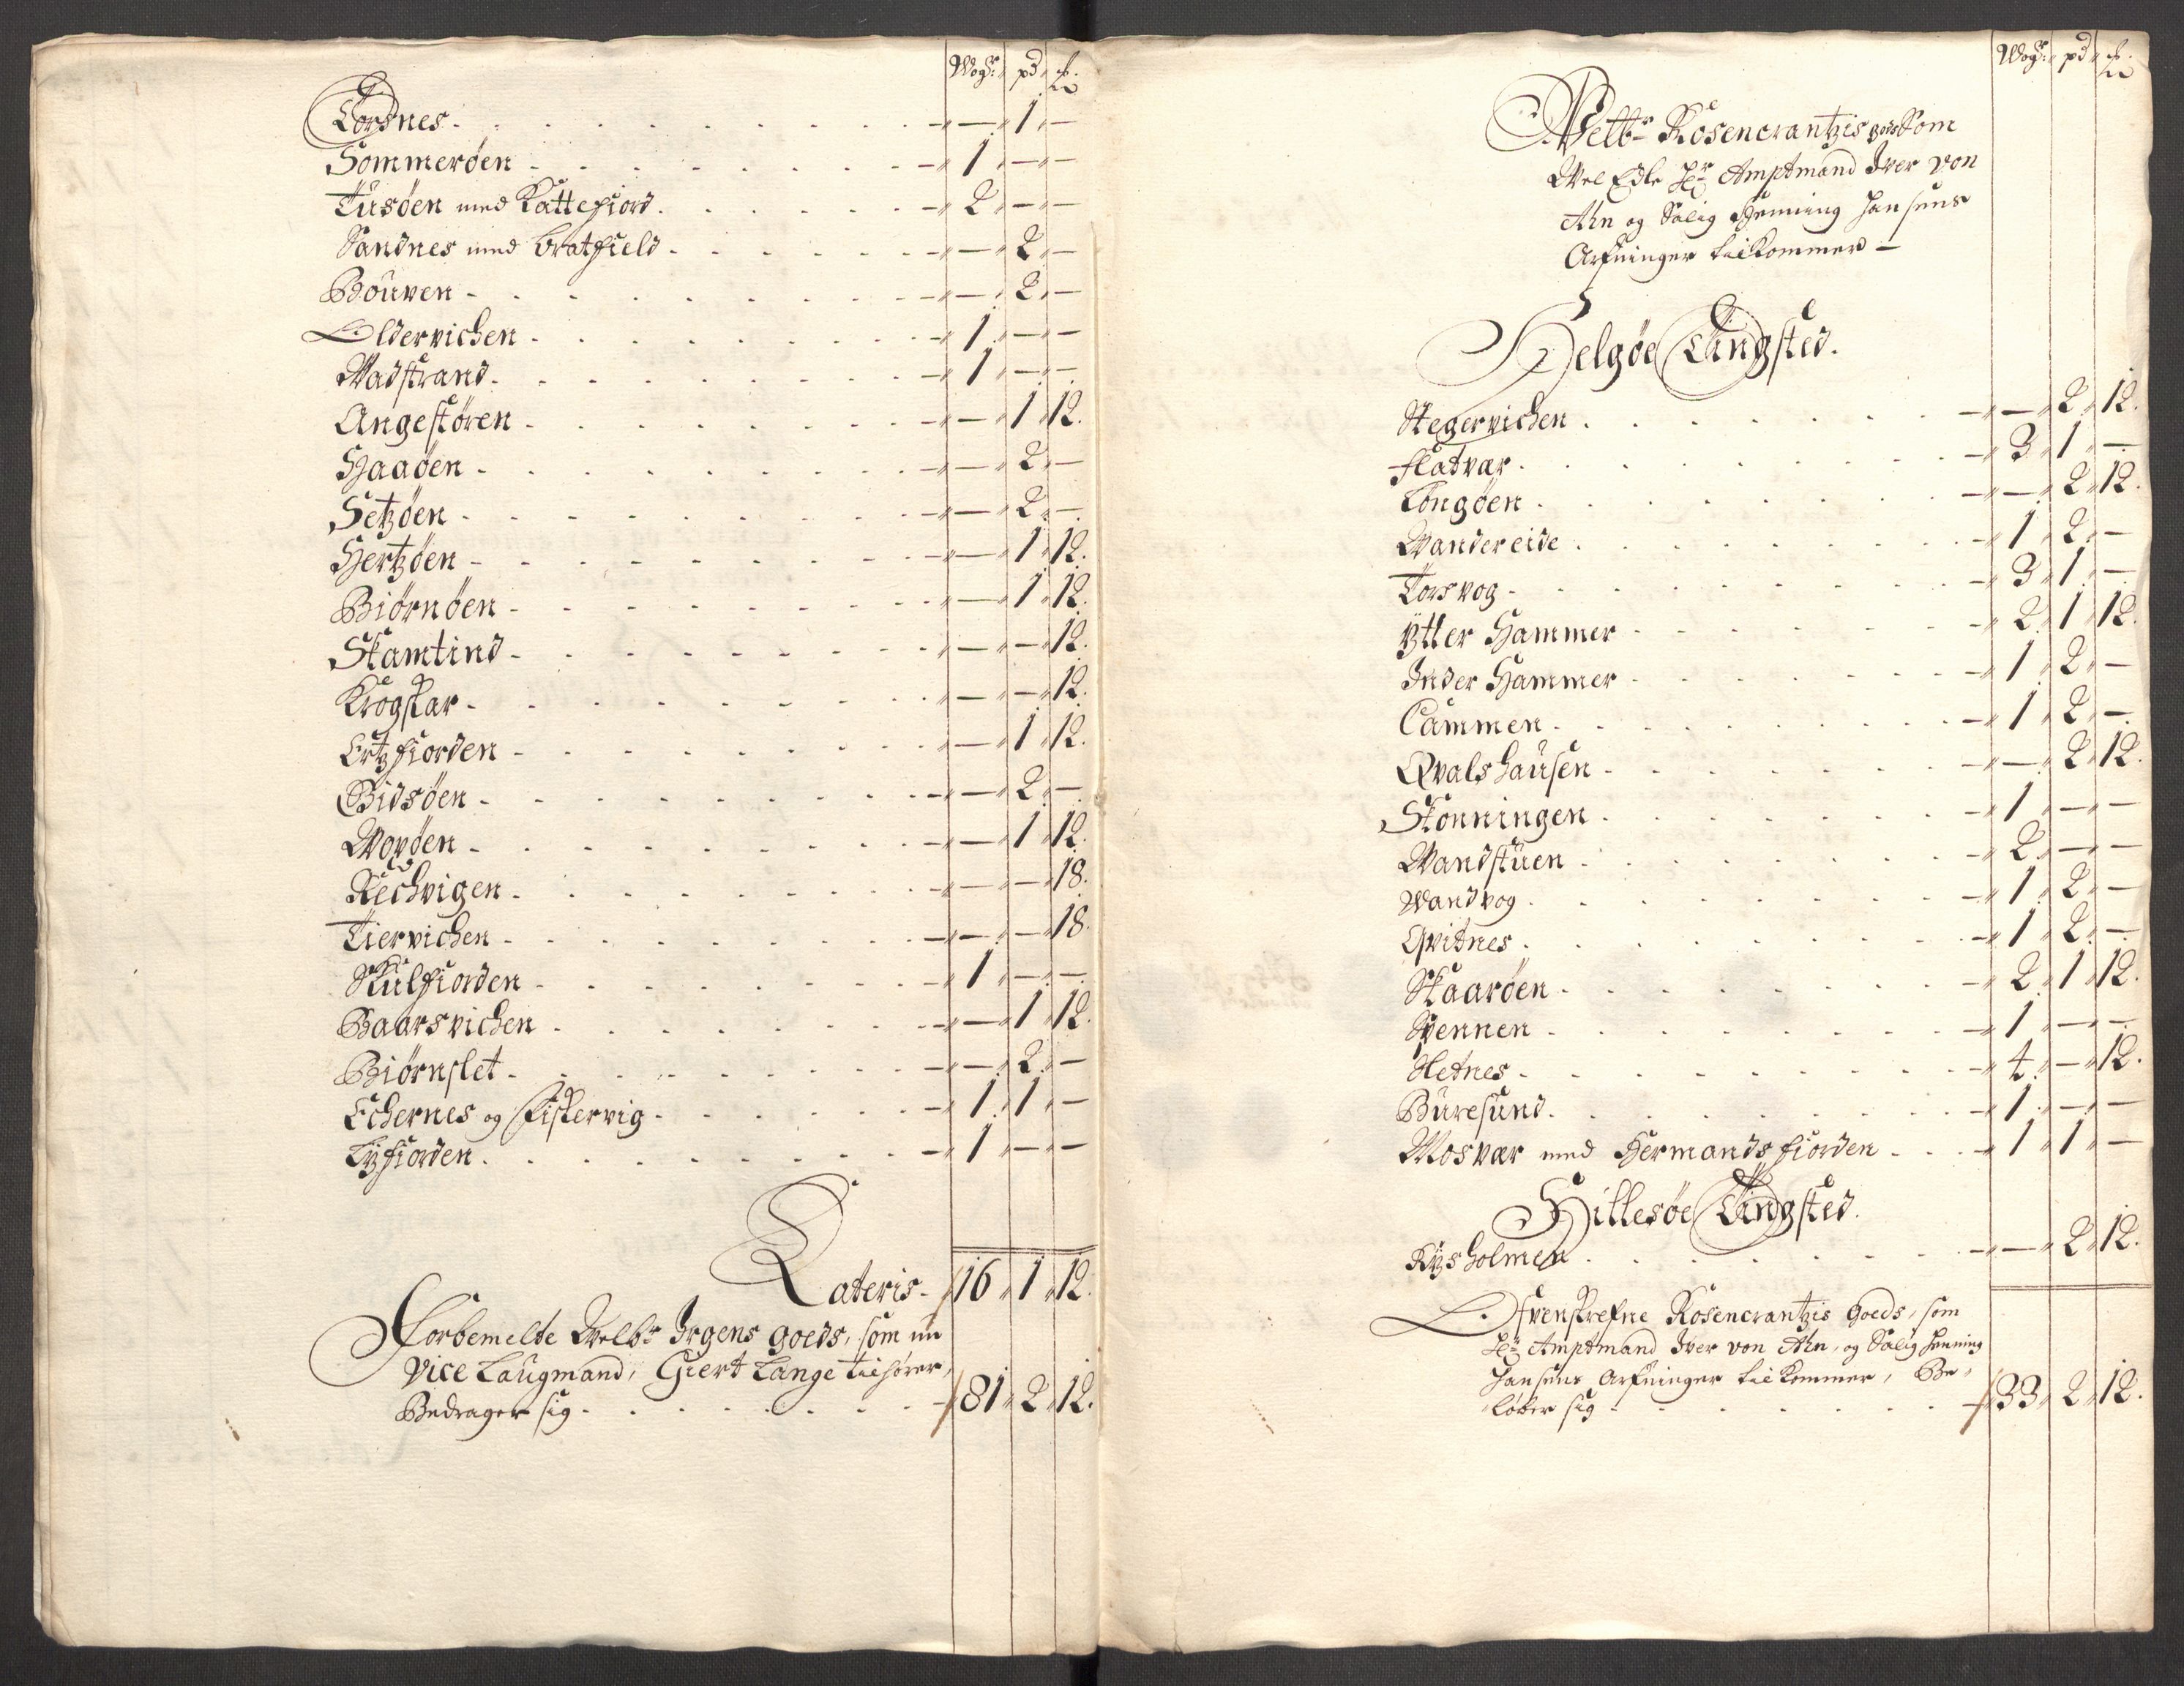 Wogr: pd ℔
Tordnes - - 1 -
Sommerøen - 1 - -
Tusøen med Kattefiord - 2 - -
Sandnes med bratfield - - 2 -
Bouven - - 2 -
Oldervichen - 1 - -
Wadstrand - 1 - -
Angestøren - - 1 12.
Haaøen - - 2 -
Setzøen - - 2 -
Hertzøen - - 1 12.
Biørnøen - - 1 12.
Skamtind - - - 12.
Krogskar - - - 12.
Ertzfiorden - - 1 12.
Bidsøen - - 2 -
Woyøen - - 1 12.
Rechvigen - - - 18.
Tiervichen - - - 18.
Skulfiorden - 1 - -
Baarsvichen - - 1 12.
Biørnslet - - 2 -
Echernes og Fiskervig - 1 1 -
Lyfiorden - 1 - -
Lateris - 16 1 12.
Forbemelte Welbr Irgens goeds, som nu
Vice Laugmand, Giert Lange tilhører,
Bedrager sig - 81 2 12.
Wogr: pd ℔
Velbr Rosencrantzis gods Som
Wel Edle Hr Amptmand Iver von
Ahn og Salig Henning Jansens
Arfuinger tilkommer -
Helgøe Tingsted.
Stegervichen - - 2 12.
Flatvær - 3 1 -
Longøen - - 2 12.
Wandereide - 1 2 -
Torsvog - 3 1 -
Ytter Hammer - 2 1 12.
Inder Hammer - 1 2 -
Cammen - 1 2 -
Qvalshausen - - 2 12.
Skonningen - 1 - -
Wandstuen - 2 - -
Wandvog - 1 2 -
Qvitnes - 1 2 -
Skaarøen - 2 1 12.
Spennen - 1 - -
Hetnes - 4 - 12.
Buresund - 1 - -
Mosvær med Hermandsfiorden - 1 1 -
Hillesøe Tingsted.
Rysholmen - - 2 12.
Ofvenskrefne Rosencrantzis goeds, som
Hr Amptmand Iver von Ahn, og Salig Henning
Jansens Arfuinger tilkommer, Be-
løber sig - 33 2 12.